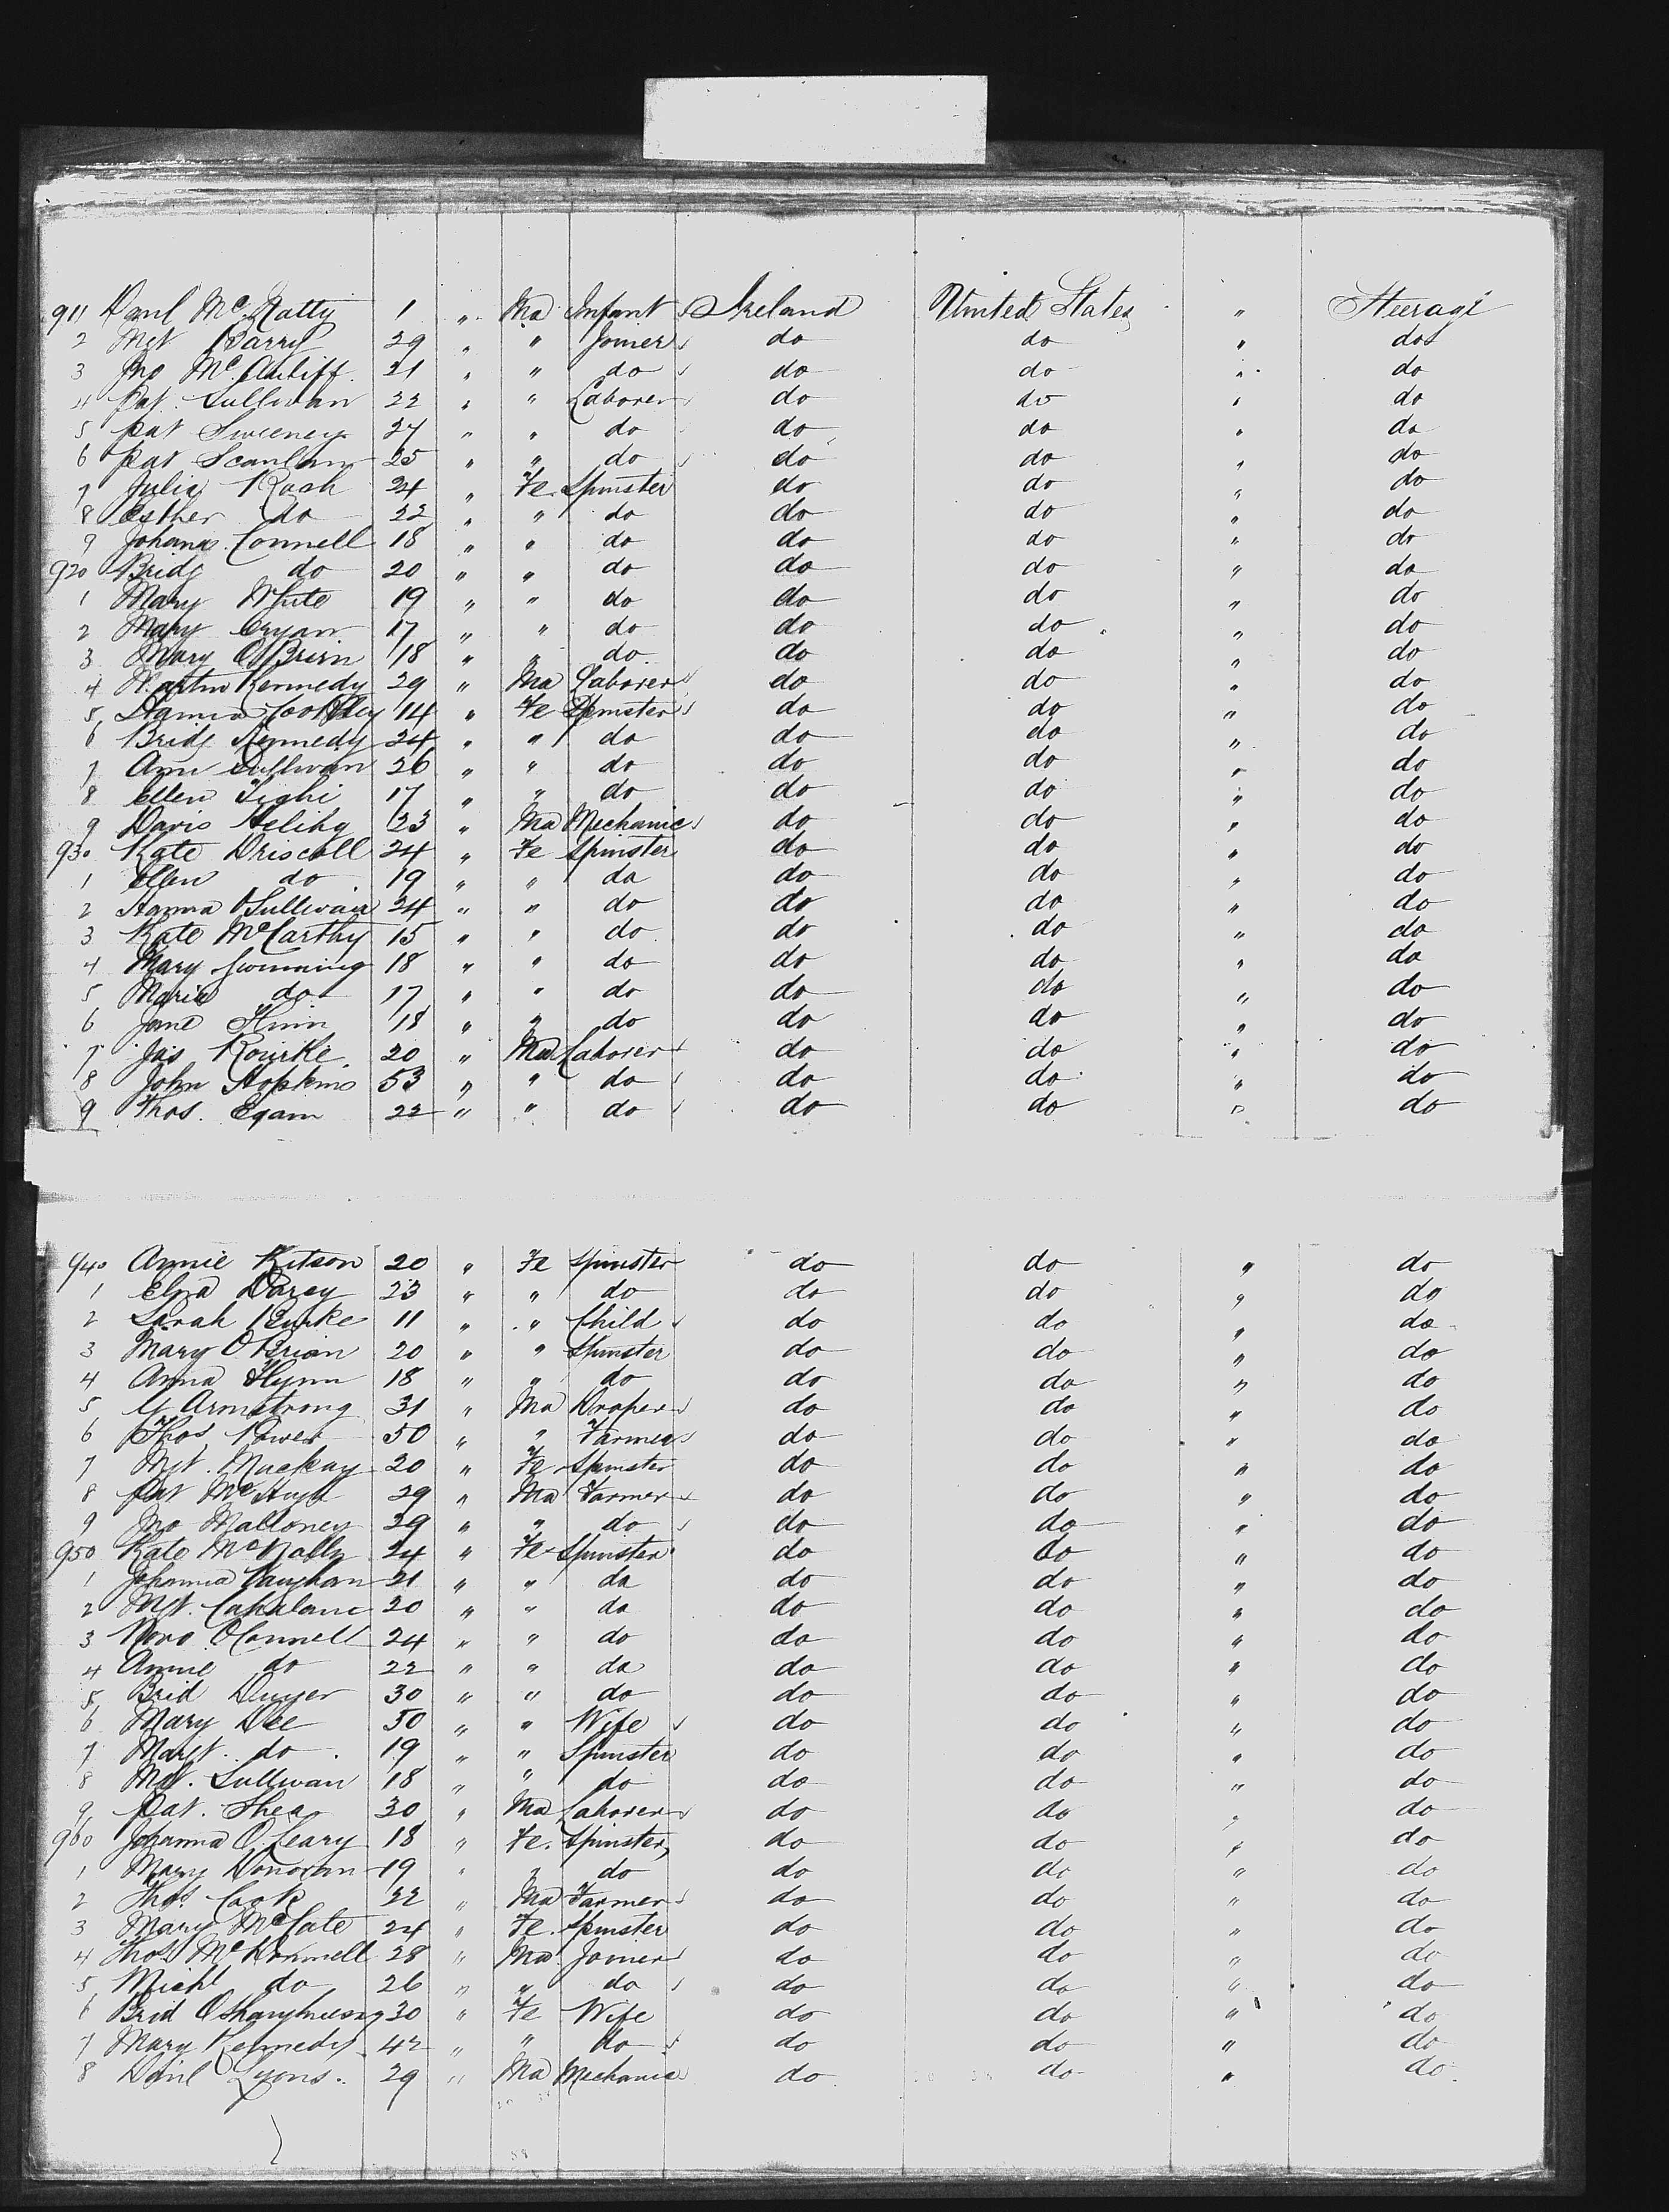 911 Danl McNatty 1 " Ma Infant Ireland United States " Steerage
2 Mgt Barry 29 " " Joiner do do " do
3 Jno McAuliff 21 " " do do do " do
4 Pat Sullivan 22 " " Laborer do do " do
5 Pat Sweeney 27 " " do do do " do
6 Pat Scanlan 25 " " do do do " do
7 Julia Rash 24 " Fe Spinster do do " do
8 Esther do 22 " " do do do " do
9 Johana Connell 18 " " do do do " do
920 Bridg do 20 " " do do do " do
1 Mary White 19 " " do do do " do
2 Mary Cryan 17 " " do do do " do
3 Mary OBrien 18 " " do do do " do
4 Martin Kennedy 29 " Ma Laborer do do " do
5 Hanna 14 " Fe Spinster do do " do
6 Bridg Kennedy 24 " " do do do " do
7 Ann Sullivan 26 " " do do do " do
8 Ellen Tighi 17 " " do do do " do
9 Davis 23 " Ma Mechanic do do " do
930 Kate Driscoll 24 " Fe Spinster do do " do
1 Ellen do 19 " " do do do " do
2 Hanna OSullivan 24 " " do do do " do
3 Kate McCarthy 15 " " do do do " do
4 Mary 18 " " do do do " do
5 Maria do 17 " " do do do " do
6 Jane Flinn 18 " " do do do " do
7 Jas Rourke 20 " Ma Laborer do do " do
8 John Hopkins 53 " " do do do " do
9 Thos. Egam 22 " " do do do " do
940 Annie Kitson 20 " Fe Spinster do do " do
1 Eliza Darcy 23 " " do do do " do
2 Sarah Burke 11 " " Child do do " do
3 Mary OBrian 20 " " Spinster do do " do
4 Anna Flynn 18 " " do do do " do
5 G Armstrong 31 " Ma Draper do do " do
6 Thos Power 50 " " Farmer do do " do
7 Mgt. Mackay 20 " Fe Spinster do do " do
8 Pat McHugh 29 " Ma Farmer do do " do
9 Jno Malloney 29 " " do do do " do
950 Kate McNally 24 " Fe Spinster do do " do
1 Johanna Vaughan 21 " " do do do " do
2 Mgt. Cahalane 20 " " do do do " do
3 Nora OConnell 24 " " do do do " do
4 Annie do 22 " " do do do " do
5 Brid Dwyer 30 " " do do do " do
6 Mary Dee 50 " " Wife do do " do
7 Margt. do 19 " " Spinster do do " do
8 Mgt. Sullivan 18 " " do do do " do
9 Pat. Shea 30 " Ma Laborer do do " do
960 Johanna O'Leary 18 " Fe. Spinster do do " do
1 Mary Donovan 19 " " do do do " do
2 Thos Cook 22 " Ma Farmer do do " do
3 Mary McCate 24 " Fe. Spinster do do " do
4 Thos McDonnell 28 " Ma Joiner do do " do
5 Michl do 26 " " do do do " do
6 Brid OShaughnessy 30 " Fe Wife do do " do
7 Mary Kennedy 42 " " do do do " do
8 Danl Lyons 29 " Ma Mechanic do do " do